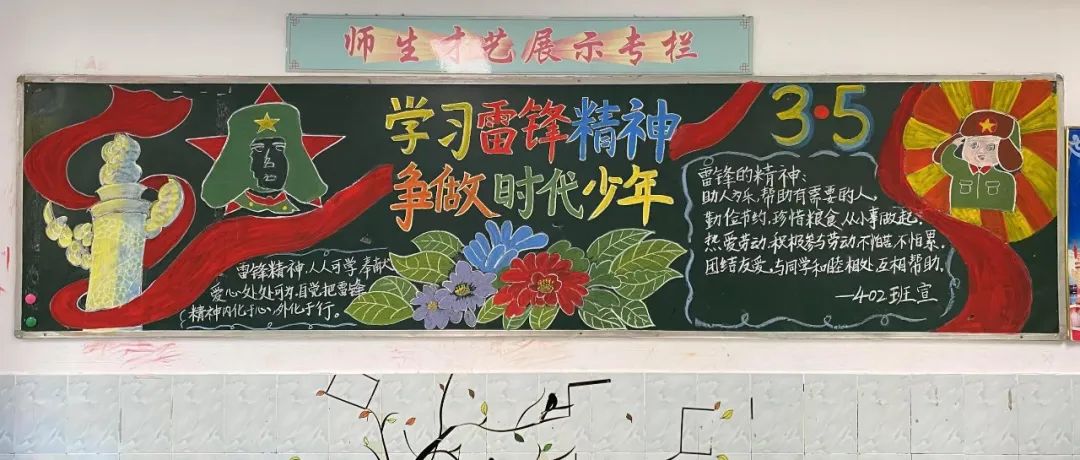 师生才艺展示专栏
学习雷锋精神
争做时代少年
3·5
雷锋精神,人人可学奉献
爱心处处可为,自觉把雷锋
精神内化于心,外化于行。
雷锋的精神:
助人为乐,帮助有需要的人,
勤俭节约,珍惜粮食,从小事做起,
热爱劳动,积极参与劳动,不怕苦,不怕累。
团结友爱,与同学和睦相处,互相帮助。
—402班宣